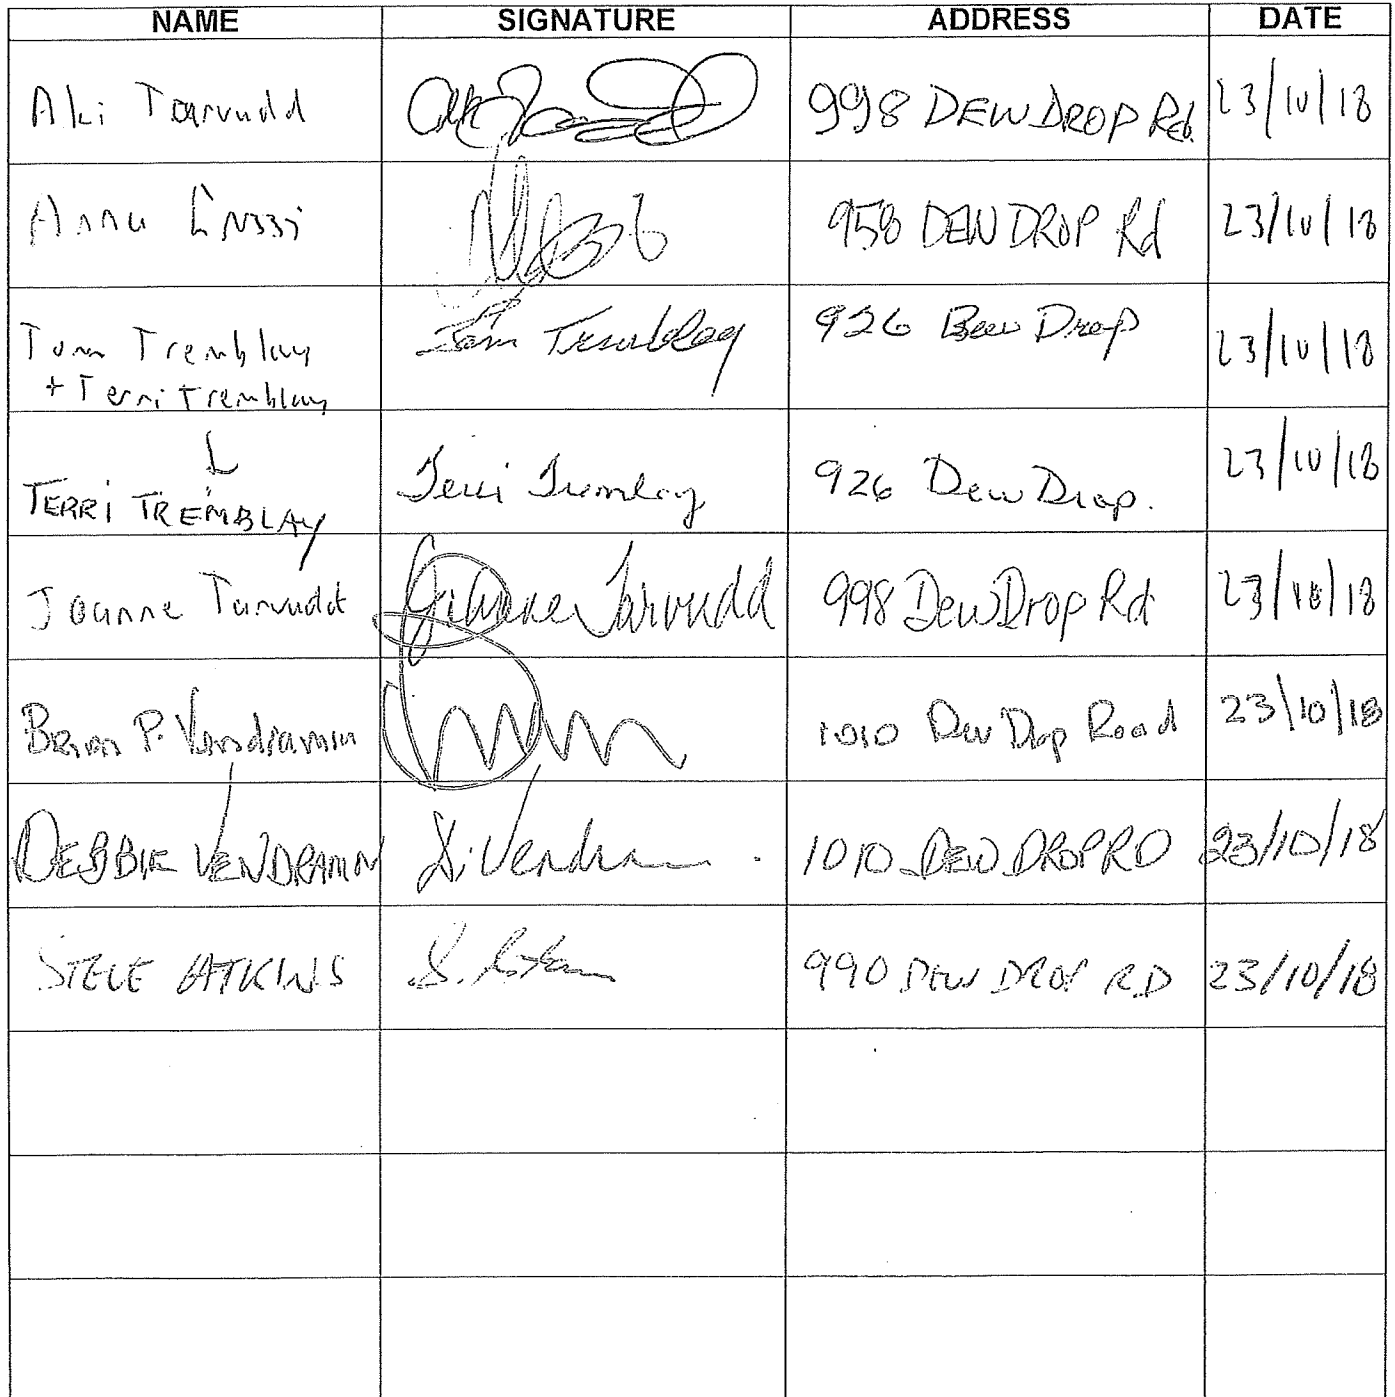 NAME SIGNATURE ADDRESS DATE
Aki Tarvudd 998 DEW DROP Rd. 23/10/18
Anna 958 DEW DROP Rd 23/10/18
Tom Tremblay Tom Tremblay 926 Dew Drop 23/10/18
+ Terri Tremblay
TERRI TREMBLAY Terri Tremblay 926 Dew Drop. 23/10/18
Joanne Tarvudd Joanne Tarvudd 998 Dew Drop Rd 23/10/18
Brian P. Vendramin 1010 Dew Drop Road 23/10/18
DEBBIE VENDRAMIN D. Vendramin 1010 DEW DROP RD 23/10/18
STEVE ATKINS S. Atkins 990 DEW DROP RD 23/10/18